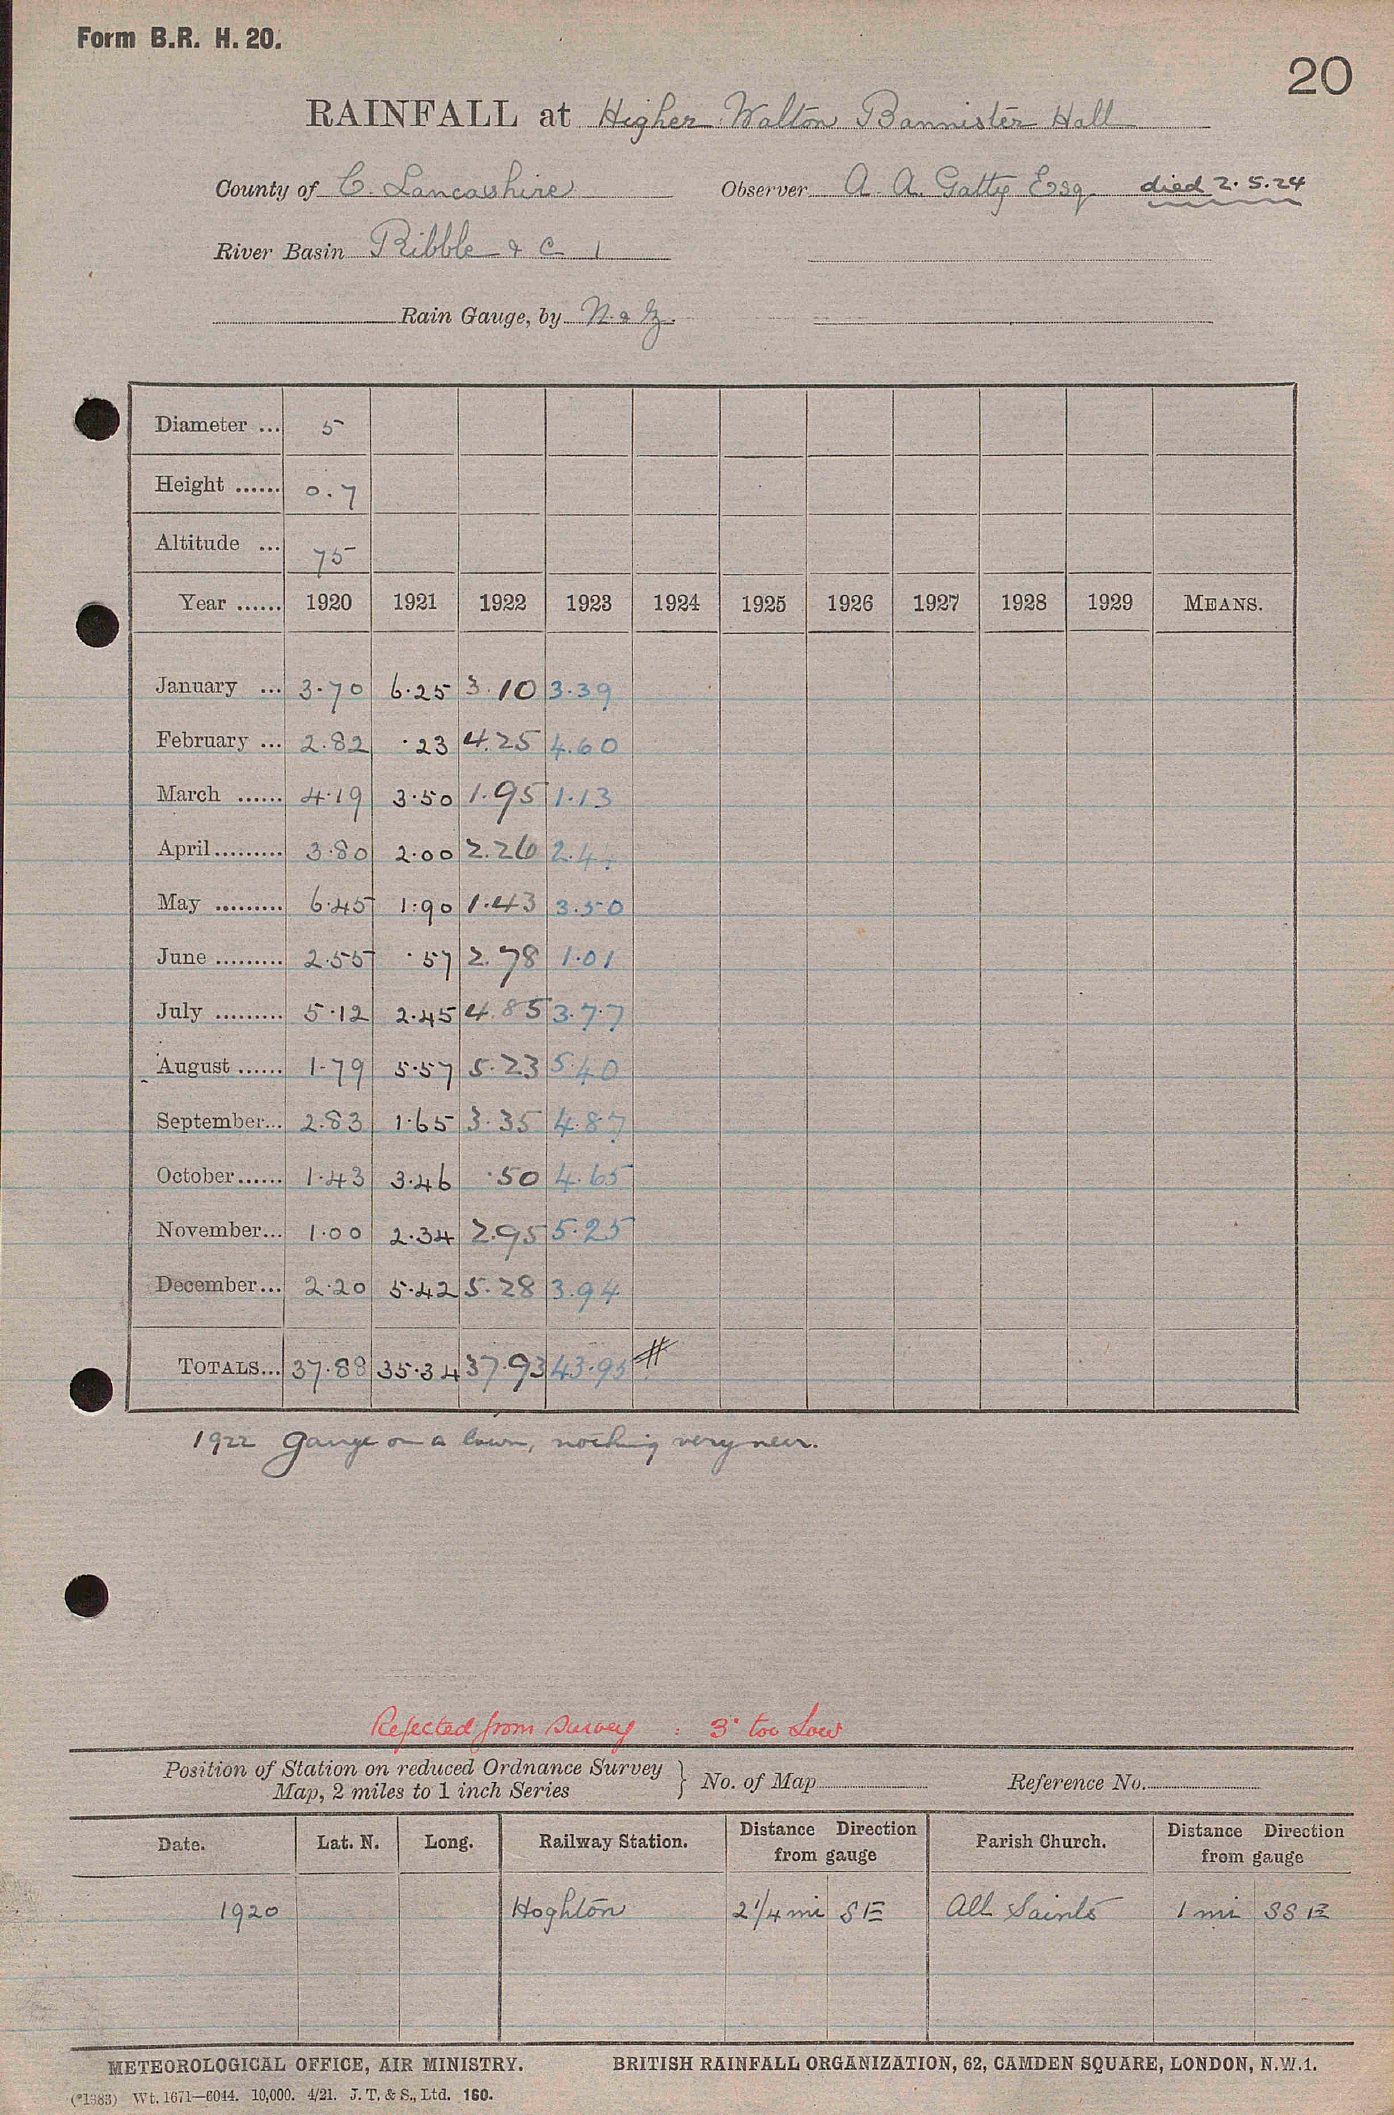 Form B.R. H. 20.
20
RAINFALL at Higher Walton Bannister Hall
County of C. Lancashire Observer A. A. Gatty Esq. died 2.5.24
River Basin Ribble & C 1
Rain Gauge, by N & Z.
Diameter ... 5
Height ...... 0.7
Altitude ... 75
Year ...... 1920 1921 1922 1923 1924 1925 1926 1927 1928 1929 MEANS.
January ... 3.70 6.25 3.10 3.39
February ... 2.82 .23 4.25 4.60
March ...... 4.19 3.50 1.95 1.13
April ......... 3.80 2.00 2.26 2.4
May ......... 6.45 1.90 1.43 3.50
June ......... 2.55 .57 2.78 1.01
July ......... 5.12 2.45 4.85 3.77
August ...... 1.79 5.57 5.23 5.40
September... 2.83 1.65 3.35 4.87
October...... 1.43 3.46 .50 4.65
November... 1.00 2.34 2.95 5.25
December... 2.20 5.42 5.28 3.94
TOTALS... 37.88 35.34 37.93 43.95 #
1922 Gauge on a lawn, nothing very near.
Rejected from Survey : 3" too Low
Position of Station on reduced Ordnance Survey
Map, 2 miles to 1 inch Series } No. of Map Reference No.
Date. Lat. N. Long. Railway Station. Distance Direction from gauge Parish Church. Distance Direction from gauge
1920 Hoghton 2 1/4 mi SE All Saints 1 mi SSE
METEOROLOGICAL OFFICE, AIR MINISTRY. BRITISH RAINFALL ORGANIZATION, 62, CAMDEN SQUARE, LONDON, N.W.1.
(*1383) Wt. 1671—6044. 10,000. 4/21. J. T. & S., Ltd. 160.